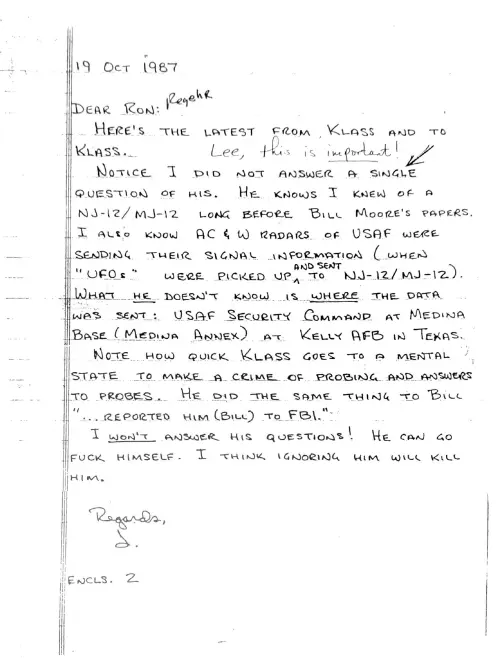 19 OCT 1987
DEAR RON: Regehr
HERE'S THE LATEST FROM KLASS AND TO
KLASS. Lee, this is important!
NOTICE I DID NOT ANSWER A SINGLE
QUESTION OF HIS. HE KNOWS I KNEW OF A
NJ-12/MJ-12 LONG BEFORE BILL MOORE'S PAPERS.
I ALSO KNOW AC & W RADARS OF USAF WERE
SENDING THEIR SIGNAL INFORMATION (WHEN
"UFOs" WERE PICKED UP AND SENT TO NJ-12/MJ-12).
WHAT HE DOESN'T KNOW IS WHERE THE DATA
WAS SENT: USAF SECURITY COMMAND AT MEDINA
BASE (MEDINA ANNEX) AT KELLY AFB IN TEXAS.
NOTE HOW QUICK KLASS GOES TO A MENTAL
STATE TO MAKE A CRIME OF PROBING AND ANSWERS
TO PROBES. HE DID THE SAME THING TO BILL
"... REPORTED HIM (BILL) TO FBI."
I WON'T ANSWER HIS QUESTIONS! HE CAN GO
FUCK HIMSELF. I THINK IGNORING HIM WILL KILL
HIM.
Regards,
J.
ENCLS. 2